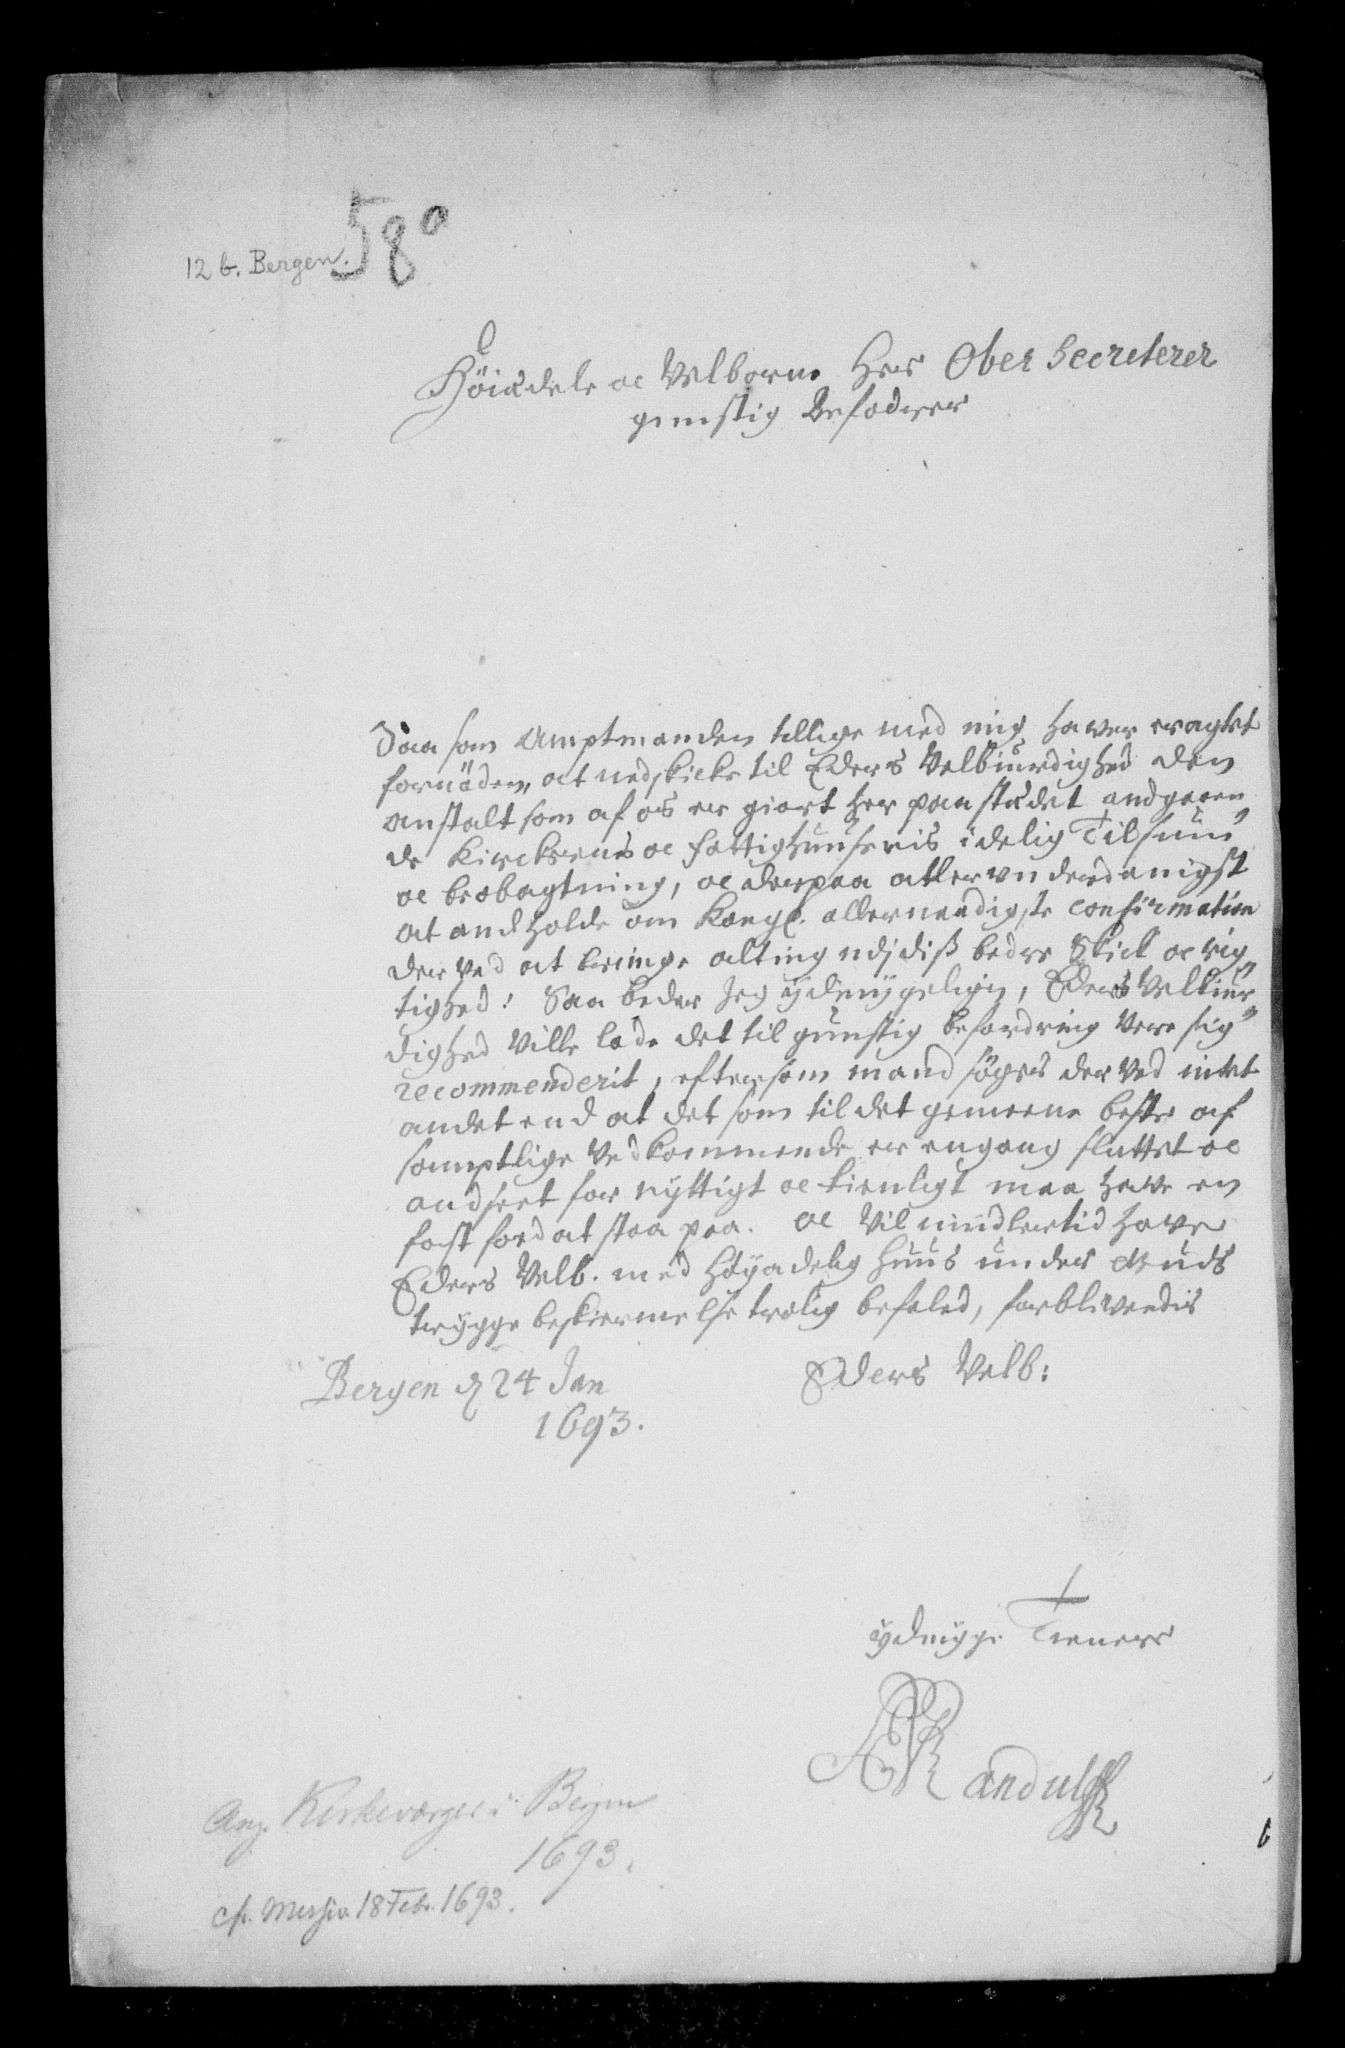 58a
12 b. Bergen.
Höiædele oc Velborne Her Ober Secreterer
gunstig Befodrer
Saa som Amptmanden tillige med mig haver eragtet
fornöden, at nedskicke til Eders Velbiurdighed den
anstalt som af os er giort her paa stædet andgaaen
de Kirckernes oc fattighuusenis idelig Tilsiun
oc beobagtning, oc derpaa allerunderdanigst
at andholde om Kongl. allernaadigste confirmation
der ved at bringe alting udj diss bedre Skick oc rig
tighed: Saa beder Jeg ydmygeligen, Eders Velbiur
dighed ville lade det til gunstig befordring vere sig
recommenderit, eftersom mand söger der ved intet
andet end at det som til det gemeene beste af
samptlige vedkommende er engang sluttet oc
andseet for nyttigt oc tienligt maa have en
fast foed at staa paa. oc vil imidlertid have
Eders Velb. med höyadelig Huus under Guds
trygge beskiermelse trolig befaled, forblivendis
Eders Velb:
Bergen d 24 Jan
1693.
ydmyge Tienere
Randulff
Ang. Kirkeværger i Bergen
1693.
cfr. Missiv 18 Febr. 1693.